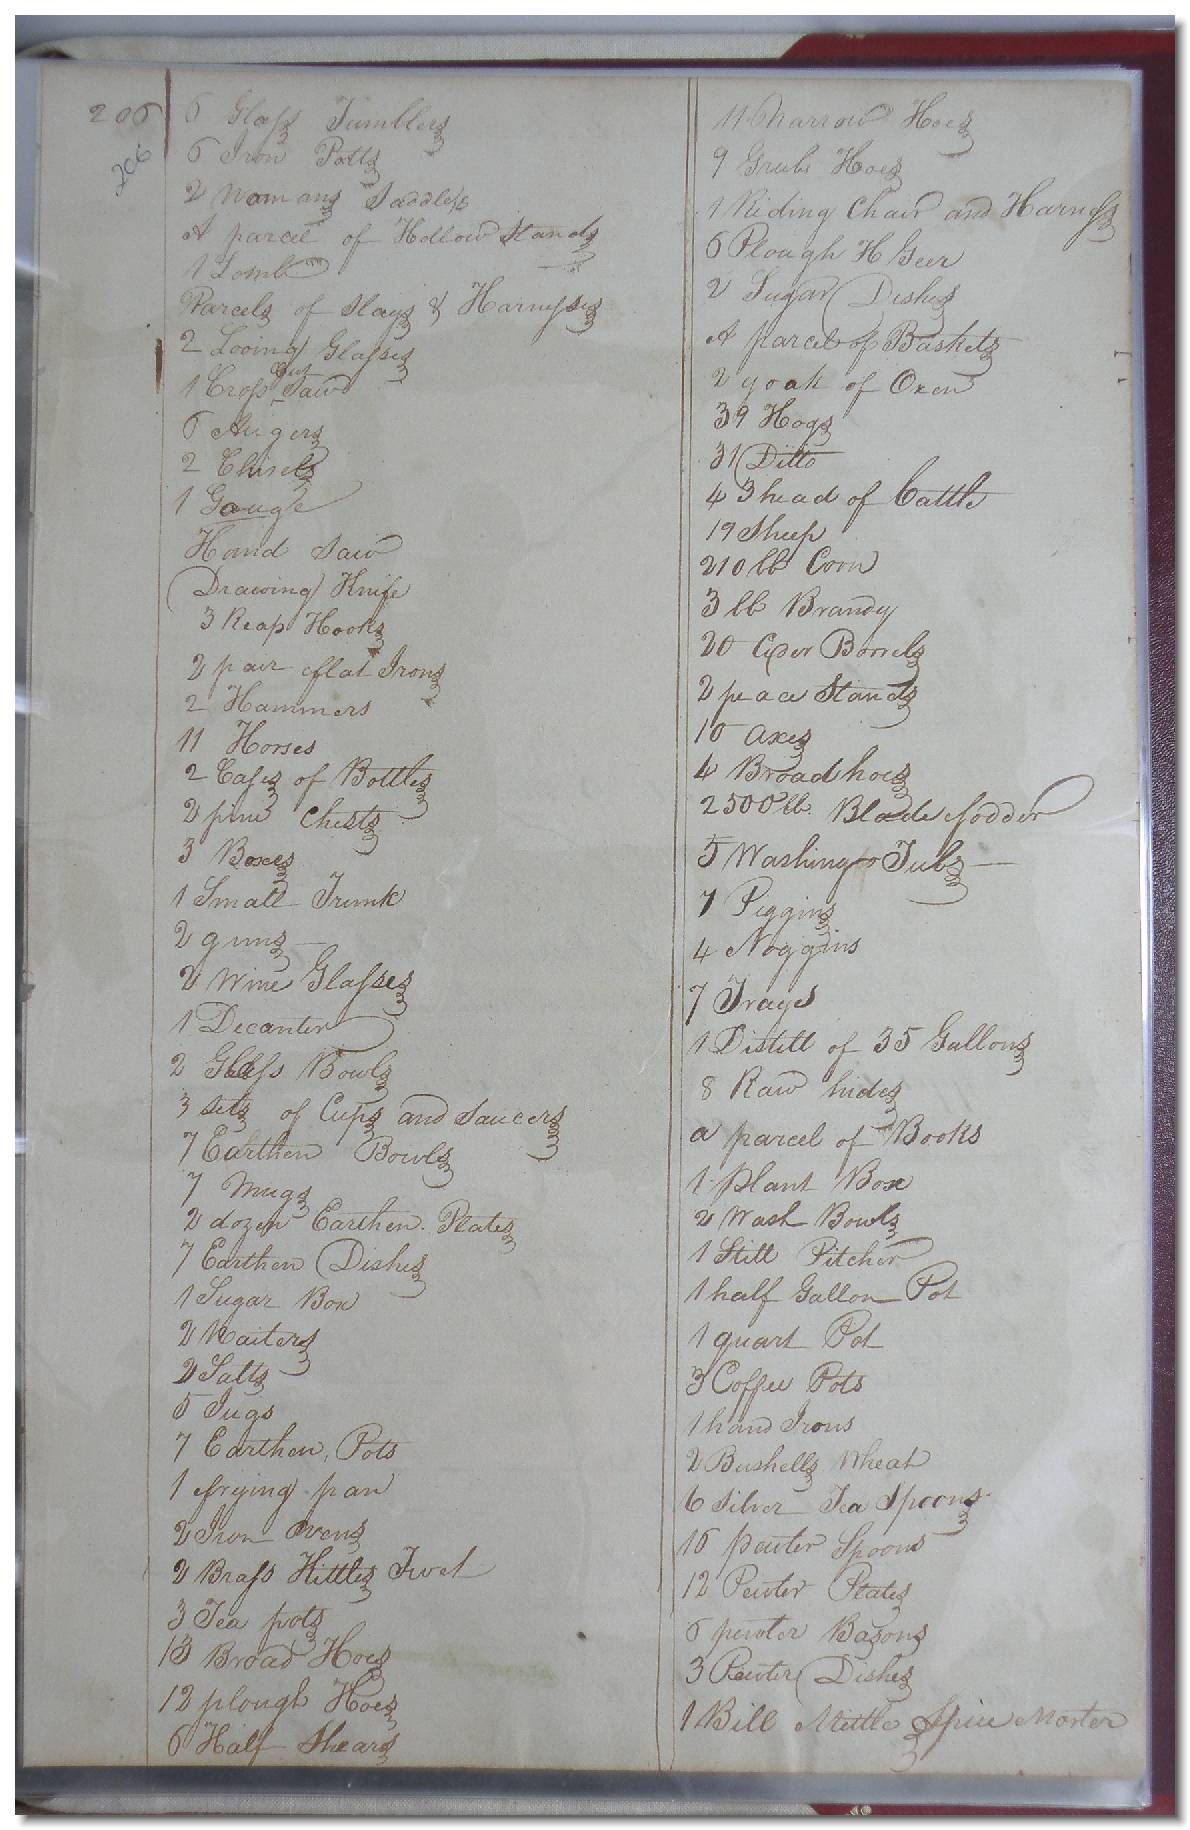 206
206
6 Glass Tumblers
6 Iron Potts
2 Womans Saddles
A parcel of Hollow Stands
1 Lomb
Parcels of Slays & Harnesses
2 Looing Glasses
1 Cross Cut Saw
6 Augers
2 Chisels
1 Gouge
Hand Saw
Drawing Knife
3 Reap Hooks
2 pair flat Irons
2 Hammers
11 Horses
2 Cases of Bottles
2 pine Chests
3 Boxes
1 Small Trunk
2 guns
2 Wine Glasses
1 Decanter
2 Glass Bowls
3 sets of Cups and Saucers
7 Earthen Bowls
7 Mugs
2 dozen Earthen Plates
7 Earthen Dishes
1 Sugar Box
2 Waiters
2 Salts
5 Jugs
7 Earthen Pots
1 frying pan
2 Iron Ovens
2 Brass Kittles Trvet
3 Tea pots
13 Broad Hoes
12 plough Hoes
6 Half Shears
11 Harrow Hoes
9 Grub Hoes
1 Riding Chair and Harness
6 Plough H Geer
2 Sugar Dishes
A parcel of Baskets
2 yoak of Oxen
39 Hogs
31 Ditto
43 head of Cattle
19 Sheep
210 lb Corn
3 lb Brandy
20 Cyder Barrels
2 peace Stands
10 axes
4 Broad hoes
2500 lb. Blade fodder
5 Washing Tubs
7 Piggins
4 Noggins
7 Trays
1 Distill of 35 Gallons
8 Raw hides
a parcel of Books
1 plant Box
2 Wash Bowls
1 Still Pitcher
1 half Gallon Pot
1 quart Pot
3 Coffee Pots
1 hand Irons
2 Bushells Wheat
6 Silver Tea Spoons
16 pewter Spoons
12 Pewter Plates
6 pewter Basons
3 Pewter Dishes
1 Bell Mettle Spice Morter